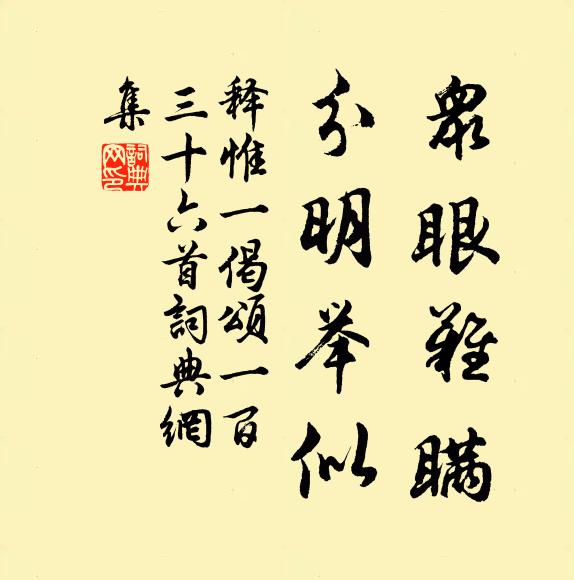 眾眼難瞞
分明举似
释惟一偈頌一百
三十六首詞典網
集
詞典
网印